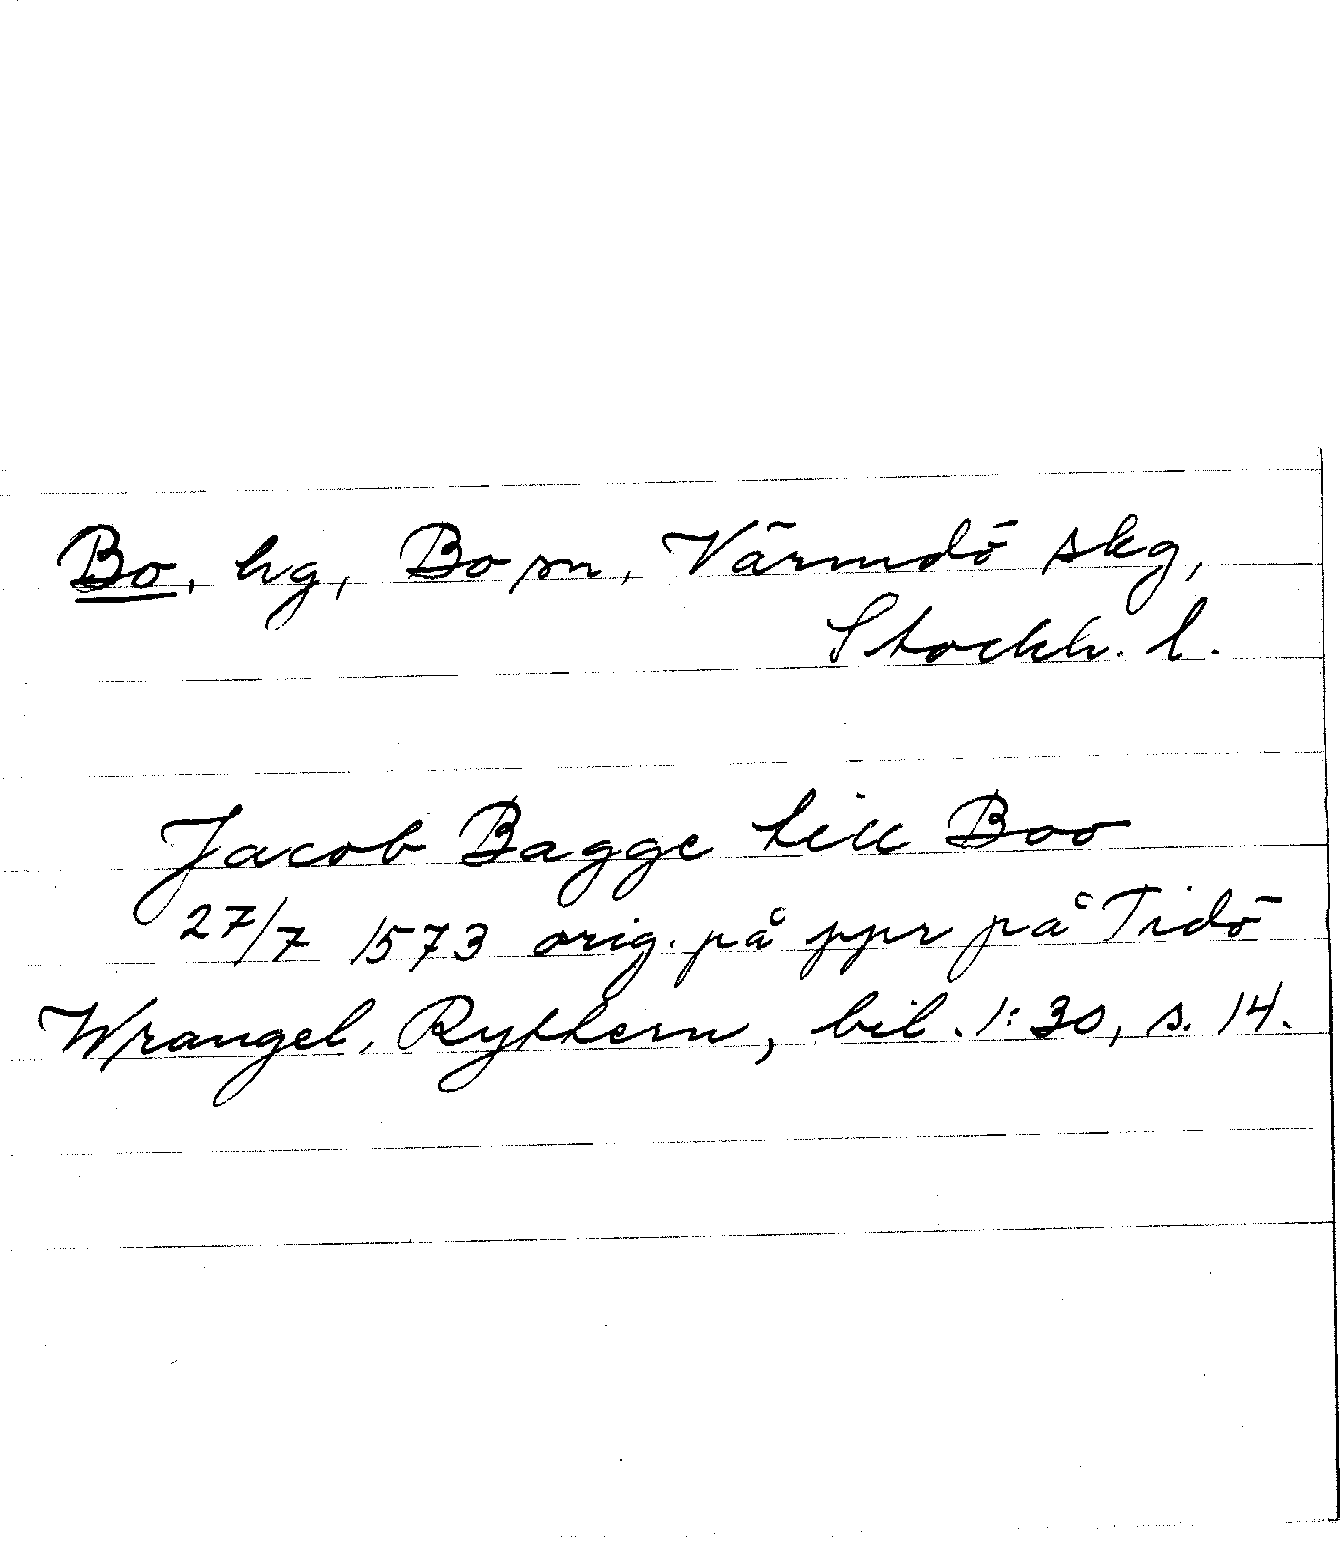 Bo, hg, Bo sn, Värmdö skg,
Stockh. l.
Jacob Bagge till Boo
27/7 1573 orig. på ppr på Tidö
Wrangel, Ryttern, bil. 1:30, s. 14.